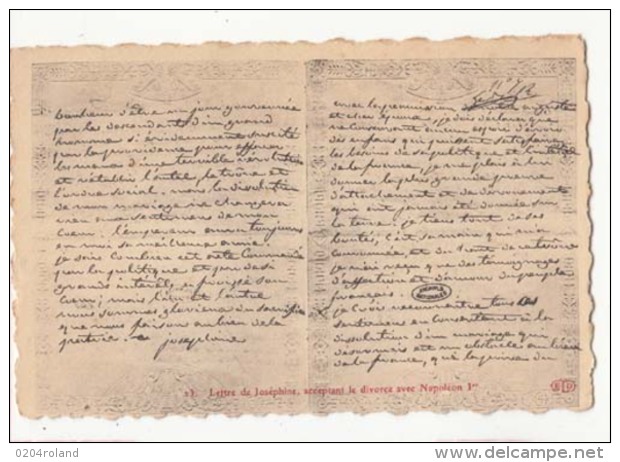 avec la permission de notre auguste
et cher époux, je dois déclarer que
ne conservant aucun espoir d'avoir
des enfans qui puissent satisfaire
les besoins de sa politique et l'intérêt
de la france, je me plais à lui
donner la plus grande preuve
d'attachement et de dévouement
qui ait jamais été donnée sur
la terre. je tiens tout de ses
bontés, c'est sa main qui m'a
couronnée, et du haut de ce trône
je n'ai reçu que des témoignages
d'affection et d'amour du peuple
français.
je crois reconnaitre tous ces
sentimens en consentant à la
dissolution d'un mariage qui
désormais est un obstacle au bien
de la france, qui la prive du
bonheur d'être un jour gouvernée
par les descendants d'un grand
homme si évidemment suscité
par la providence pour effacer
les maux d'une terrible révolution
et rétablir l'autel, le trône et
l'ordre social. mais la dissolution
de mon mariage ne changera
rien aux sentimens de mon
coeur: l'empereur aura toujours
en moi sa meilleure amie.
je sais combien cet acte commandé
par la politique et par de si
grands intérêts, a froissé son
coeur; mais l'un et l'autre
nous sommes glorieux du sacrifice
que nous faisons au bien de la
patrie.
josephine
ARCHIVES
NATIONALES
23. Lettre de Joséphine, acceptant le divorce avec Napoléon Ier
ND
0204roland
delcampe.net